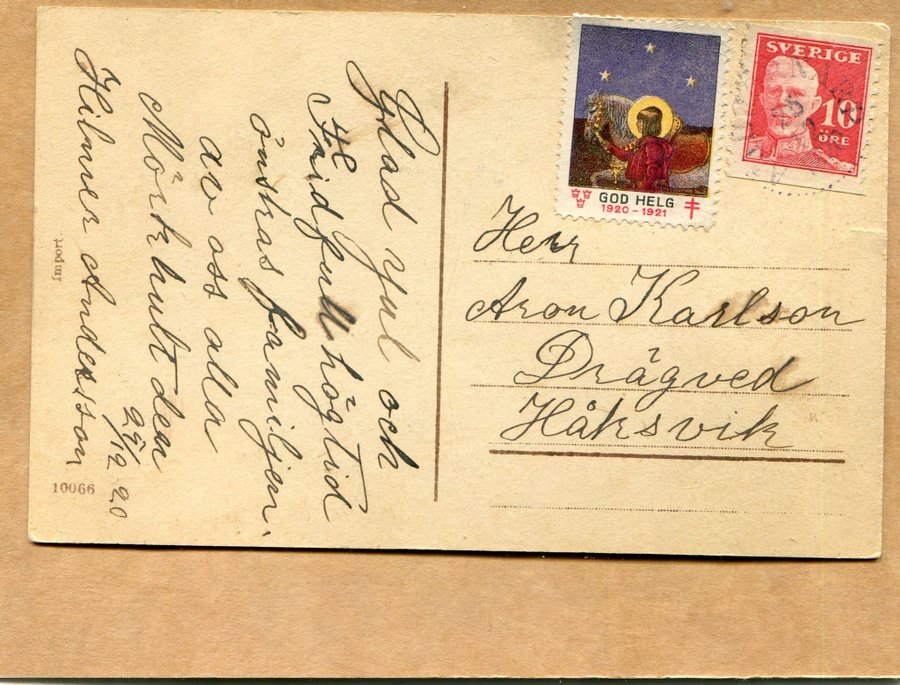 Glad Jul och
Fridfull högtid
önskas familjen.
av oss alla
Mörkhultden
Hilmer Andersson
25/12 20
Import.
10066
GOD HELG
1920-1921
SVERIGE
10
ÖRE
Herr
Aron Karlson
Drägved
Håksvik